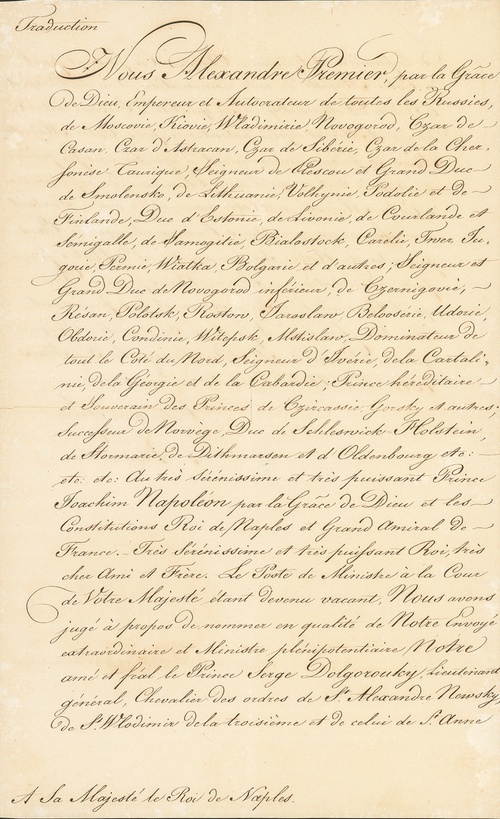 Traduction
Nous Alexandre Premier, par la Grâce
de Dieu, Empereur et Autocrateur de toutes les Russies,
de Moscovie, Kiovie, Wladimirie, Novogorod, Czar de
Casan, Czar d'Astracan, Czar de Sibérie, Czar de la Cher-
sonèse Taurique, Seigneur de Plescou et Grand Duc
de Smolensko, de Lethuanie, Volhynie, Podolie et de
Finlande, Duc d'Estonie, de Livonie, de Courlande et
Sémigalle, de Samogitie, Bialostock, Carelie, Twer, Ju-
gorie, Permie, Wiatka, Bolgarie et d'autres; Seigneur et
Grand Duc de Novogorod inférieur, de Czernigovie,
Resan, Polotsk, Rostow, Jaroslaw, Beloosérie, Udorie,
Obdorie, Condinie, Witepsk, Mstislaw, Dominateur de
tout le Coté du Nord, Seigneur d'Iverie, de la Cartali-
nie, de la Géorgie et de la Cabardie; Prince héréditaire
et Souverain des Princes de Czircassie, Gorsky et autres;
Successeur de Norvège, Duc de Schleswick-Holstein,
de Stormarie, de Dithmarsen et d'Oldenbourg etc:
etc: etc: Au très Sérénissime et très puissant Prince
Joachim Napoléon par la Grâce de Dieu et les
Constitutions Roi de Naples et Grand Amiral de
France. – Très Sérénissime et très puissant Roi, très
cher Ami et Frère. Le Poste de Ministre à la Cour
de Votre Majesté étant devenu vacant, Nous avons
jugé à propos de nommer en qualité de Notre Envoyé
extraordinaire et Ministre plénipotentiaire Notre
amé et féal le Prince Serge Dolgorouky, Lieutenant
général, Chevalier des ordres de St. Alexandre Newsky,
de St. Wlodimir de la troisième et de celui de St. Anne
A Sa Majesté le Roi de Naples.